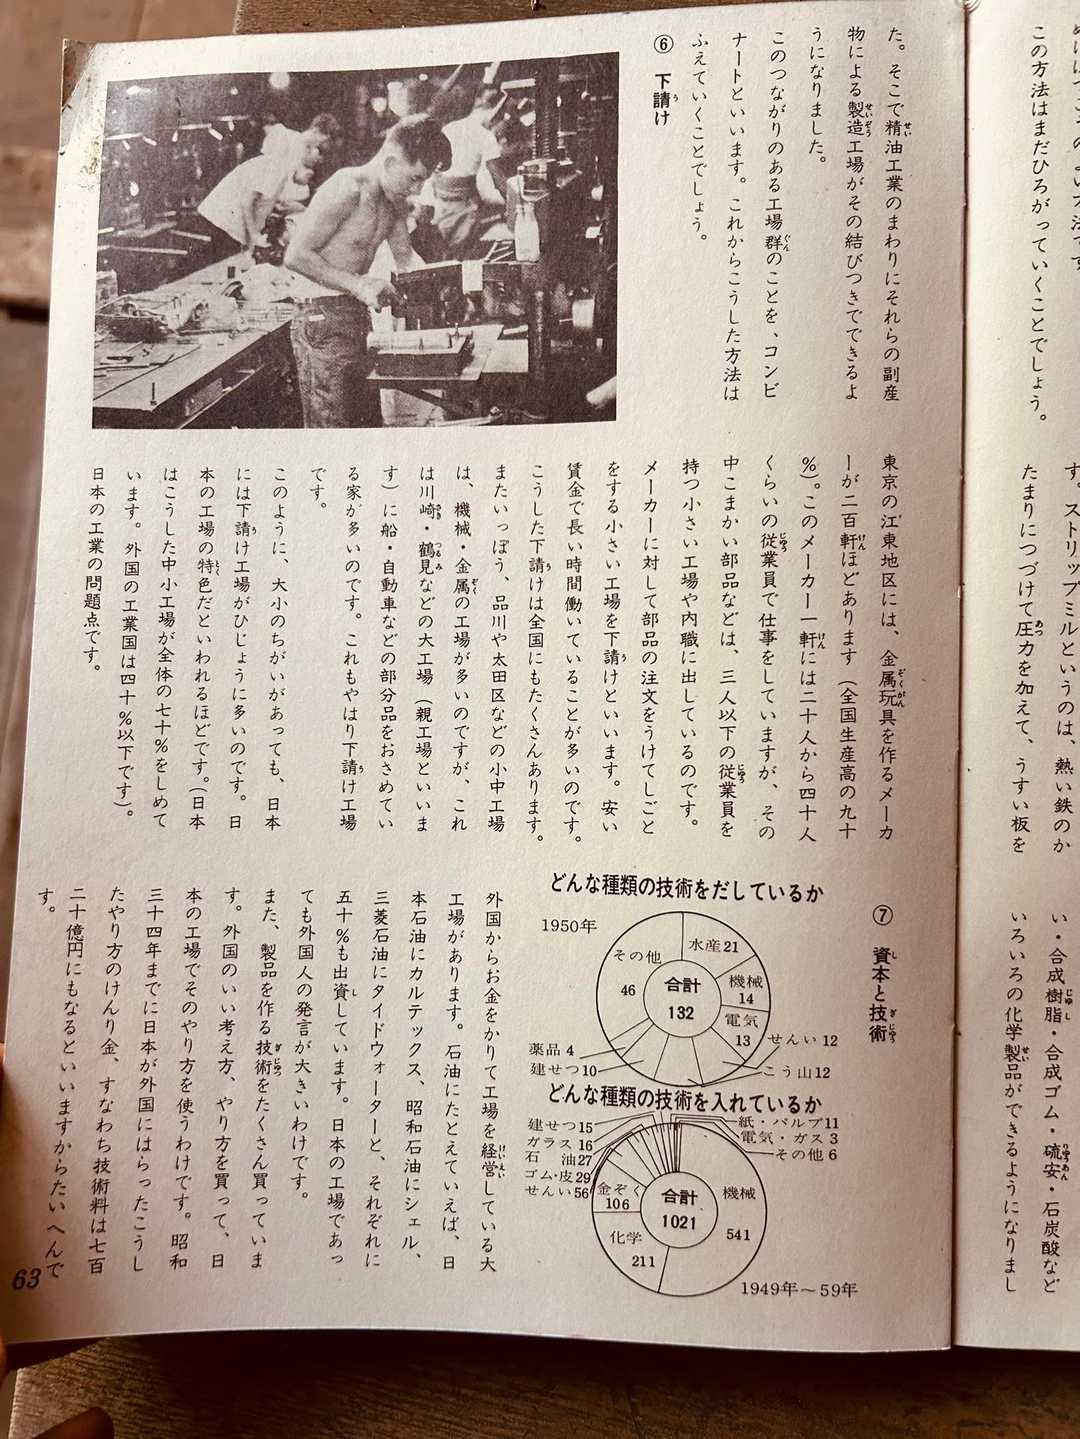 この方法はまだひろがっていくことでしょう。
す。ストリップミルというのは、熱い鉄のか
たまりにつづけて圧力を加えて、うすい板を
い・合成樹脂・合成ゴム・硫安・石炭酸など
いろいろの化学製品ができるようになりまし
た。そこで精油工業のまわりにそれらの副産
物による製造工場がその結びつきでできるよ
うになりました。
このつながりのある工場群のことを、コンビ
ナートといいます。これからこうした方法は
ふえていくことでしょう。
⑥ 下請け
東京の江東地区には、金属玩具を作るメーカ
ーが二百軒ほどあります(全国生産高の九十
%)。このメーカー一軒には二十人から四十人
くらいの従業員で仕事をしていますが、その
中こまかい部品などは、三人以下の従業員を
持つ小さい工場や内職に出しているのです。
メーカーに対して部品の注文をうけてしごと
をする小さい工場を下請けといいます。安い
賃金で長い時間働いていることが多いのです。
こうした下請けは全国にもたくさんあります。
またいっぽう、品川や太田区などの小中工場
は、機械・金属の工場が多いのですが、これ
は川崎・鶴見などの大工場(親工場といいま
す)に船・自動車などの部分品をおさめてい
る家が多いのです。これもやはり下請け工場
です。
このように、大小のちがいがあっても、日本
には下請け工場がひじょうに多いのです。日
本の工場の特色だといわれるほどです。(日本
はこうした中小工場が全体の七十%をしめて
います。外国の工業国は四十%以下です)。
日本の工業の問題点です。
⑦ 資本と技術
どんな種類の技術をだしているか
1950年
合計
132
水産21
機械
14
電気
13
せんい12
こう山12
建せつ10
薬品4
その他
46
どんな種類の技術を入れているか
合計
1021
機械
541
化学
211
金ぞく
106
せんい56
ゴム・皮29
石 油27
ガラス16
建せつ15
紙・パルプ11
電気・ガス3
その他6
1949年〜59年
外国からお金をかりて工場を経営している大
工場があります。石油にたとえていえば、日
本石油にカルテックス、昭和石油にシェル、
三菱石油にタイドウォーターと、それぞれに
五十%も出資しています。日本の工場であっ
ても外国人の発言が大きいわけです。
また、製品を作る技術をたくさん買っていま
す。外国のいい考え方、やり方を買って、日
本の工場でそのやり方を使うわけです。昭和
三十四年までに日本が外国にはらったこうし
たやり方のけんり金、すなわち技術料は七百
二十億円にもなるといいますからたいへんで
す。
63